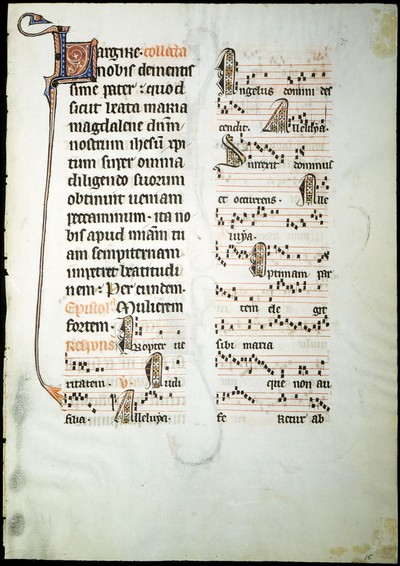 Largire. collecta
nobis clementis
sime pater. quod
sicut beata maria
magdalene dnm̄
nostrum ihesū xp̄i
tum super omnia
diligendo suorum
obtinuit ueniam
peccaminum. ita no
bis apud mīam tu
am sempiternam
impetret beatitudi
nem. Per eundem.
Epistola Mulierem
fortem.
Respons Propter ue
ritatem. v. Audi
filia. Alleluya.
Angelus domini des
cendit. Alleluya.
Surrexit dominus
et occurrens. Alle
luya.
Optimam par
tem ele git
sibi maria
que non au
fe retur ab
15